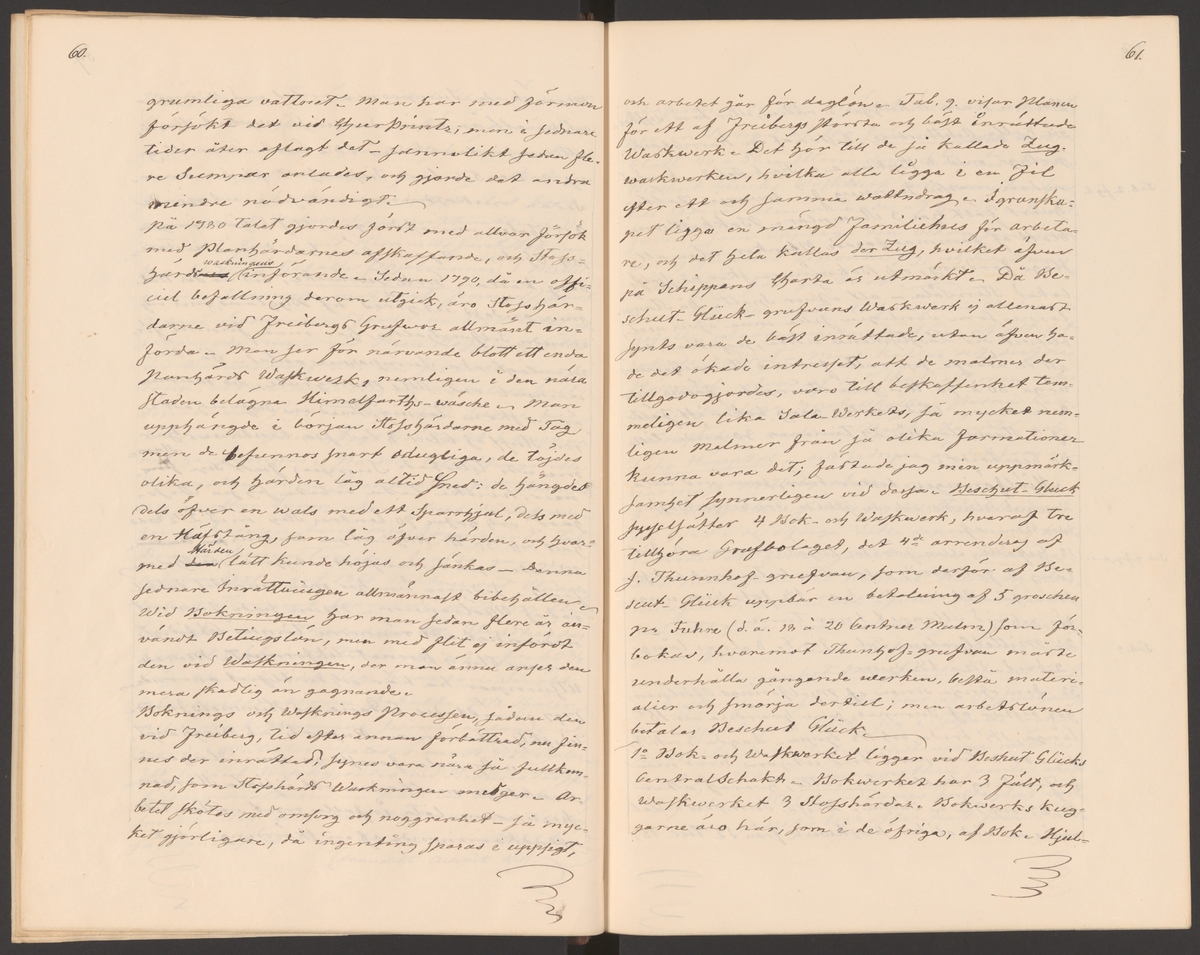 60.
grumliga vattnet. Man har med förmon
försökt det vid Churprintz; men i sednare
tider åter aflagt det – sannolikt sedan fle-
re Sumpar anlades, och gjorde det andra
mindre nödvändigt.
På 1780 talet gjordes först med allvar försök
med Planhärdarnes afskaffande, och Stoss-
härds waskningens införande. Sedan 1790, då en offi-
ciel befallning derom utgick, äro Stosshär-
darne vid Freibergs Grufwor allmänt in-
förda. Man ser för närvande blott ett enda
Planhärds Waskwerk, nemligen i den nära
staden belägna Himelfarths-wäsche. Man
upphängde i början Stosshärdarne med Tåg
men de befunnos snart odugliga, de töjdes
olika, och härden låg altid sned: de hängdes
dels öfver en wals med ett Sparrhjul, dels med
en Häfstång, som låg öfver härden, och hvar-
med Härden lätt kunde höjas och sänkas – Denna
sednare Inrättningen allmännast bibehållen.
Wid Bokningen har man sedan flere år an-
vändt Betingslön, men med flit ej infördt
den vid Waskningen, der man ännu anser den
mera skadlig än gagnande.
Boknings och Wasknings Processen, sådan den
vid Freiberg, tid efter annan förbättrad, nu fin-
nes der inrättad, synes vara nära så fullkom-
nad, som Stosshärds Waskningen medger. Ar-
betet skötes med omsorg och noggranhet – så myc-
ket görligare, då ingenting sparas i uppsigt,
61.
och arbetet går för daglön. Tab. 9. visar Planen
för ett af Freibergs största och bäst inrättade
Waskwerk. Det hör till de så kallade Zug-
waskwerken, hvilka alla ligga i en fil
efter ett och samma wattndrag. I granska-
pet ligga en mängd Familiehus för arbeta-
re, och det hela kallas der Zug, hvilket äfven
på Schippans Charta är utmärkt. Då Be-
schert-Glück-grufvans Waskwerk ej allenast
synts vara de bäst inrättade, utan äfven ha-
de det ökade intresset, att de malmer der
tillgodogjordes, voro till beskaffenhet tem-
meligen lika Sala-Werkets, så mycket nem-
ligen Malmer från så olika formationer
kunna vara det; fästade jag min uppmärk-
samhet synnerligen vid dessa. Beschert-Gluck
sysselsätter 4 Bok- och Waskwerk, hvaraf tre
tillhöra Grufbolaget, det 4de arrenderas af
J. Thurmhof-grufvan, som derför af Be-
schert-Glück uppbär en betalning af 5 groschen
pr Fuhre (d. ä. 18 à 20 Centner Malm) som för-
bokas, hvaremot Thurmhof-grufvan måste
underhålla gångande werken, bestå materi-
alier och smörja dertill; men arbetslönen
betalas Beschert Glück.
1o Bok- och Waskwerket ligger vid Beschert Glücks
Centralschakt. Bokwerket har 3 fält, och
Waskwerket 3 Stosshärdar. Bokwerks kug-
garne äro här, som i de öfriga, af Bok. Hjul-